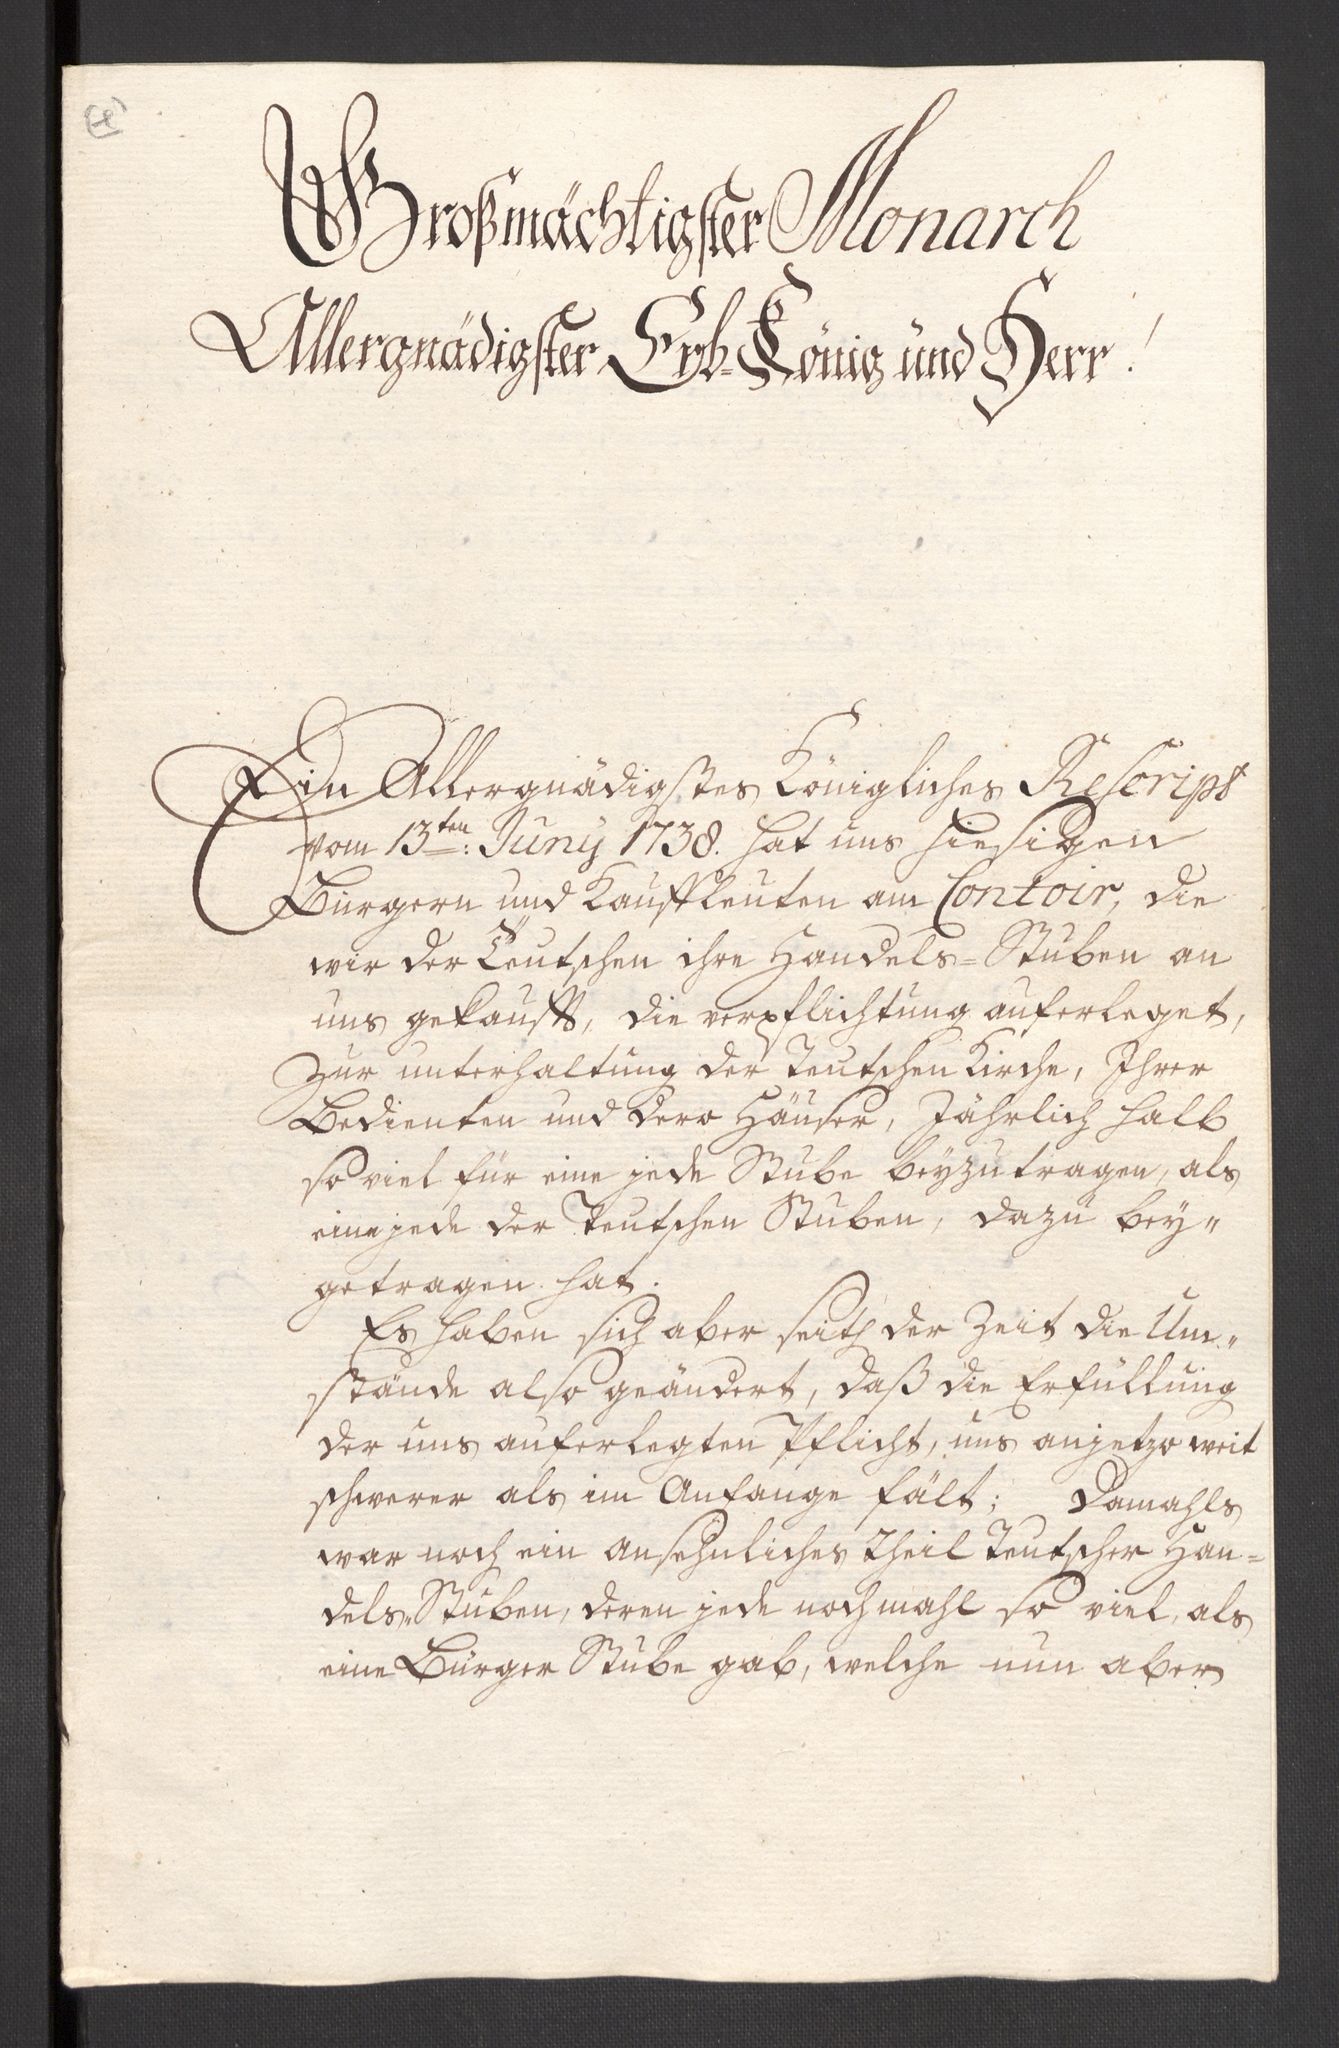 Großmächtigster Monarch
Allergnädigster Erb-König und Herr!
Ein Allergnädigstes Königliches Rescript
vom 13ten: Juny 1738. hat uns hiesigen
Bürgern und Kauffleuten am Contoir, die
wir der Teutschen ihre Handels-Stuben an
uns gekaufft, die verpflichtung auferleget,
Zur unterhaltung der Teutschen Kirche, Ihrer
Bedienten und dero Häuser, Jährlich halb
so viel für eine jede Stube beyzutragen, als
eine jede der Teutschen Stuben, dazu bey-
getragen hat.
Es haben sich aber seith der Zeit die Um-
stände also geändert, daß die Erfüllung
der uns auferlegten Pflicht, uns anjetzo weit
schwerer als im Anfange fält; Damahls
war noch ein ansehnliches Theil Teutscher Han-
dels-Stuben, deren jede nochmahl so viel, als
eine Bürger Stube gab, welche nun aber